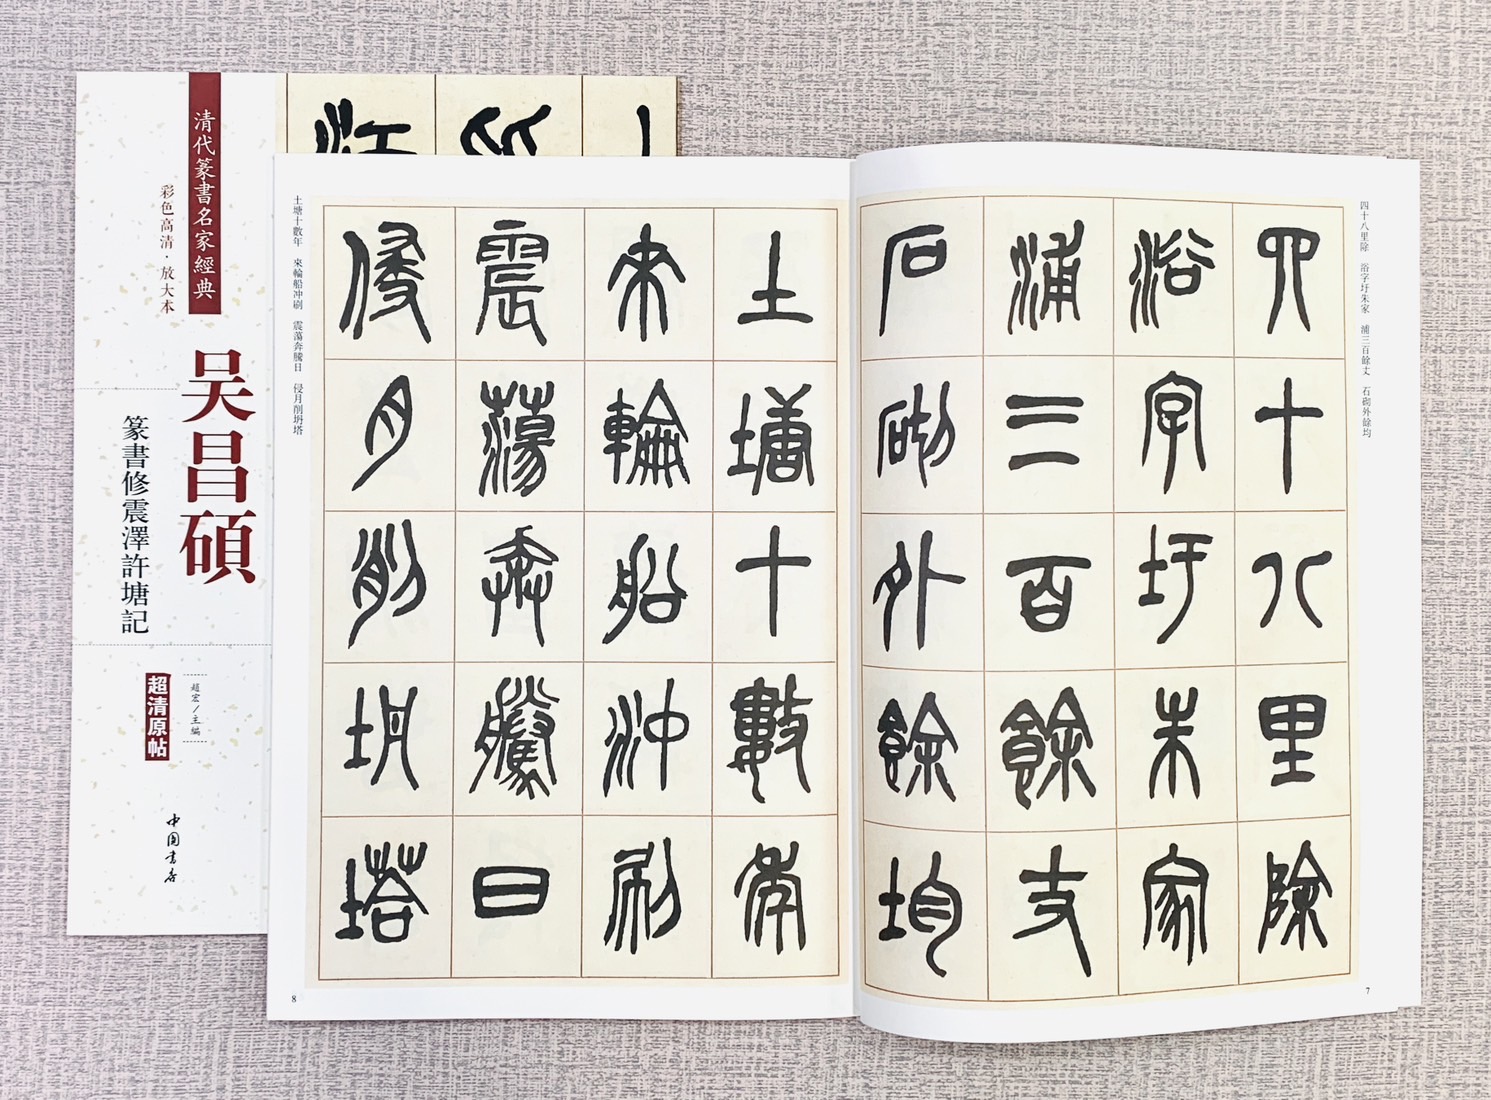 清代篆書名家經典
彩色高清·放大本
吴昌碩
篆書修震澤許塘記
趙宏/主編
超清原帖
中國書店
四十八里除
浴字圩朱家
浦三百餘丈
石砌外餘均
7
四十八里除 浴字圩朱家 浦三百餘丈 石砌外餘均
土塘十數年
來輪船沖刷
震蕩奔騰日
侵月削坍塔
8
土塘十數年 來輪船冲刷 震蕩奔騰日 侵月削坍塔